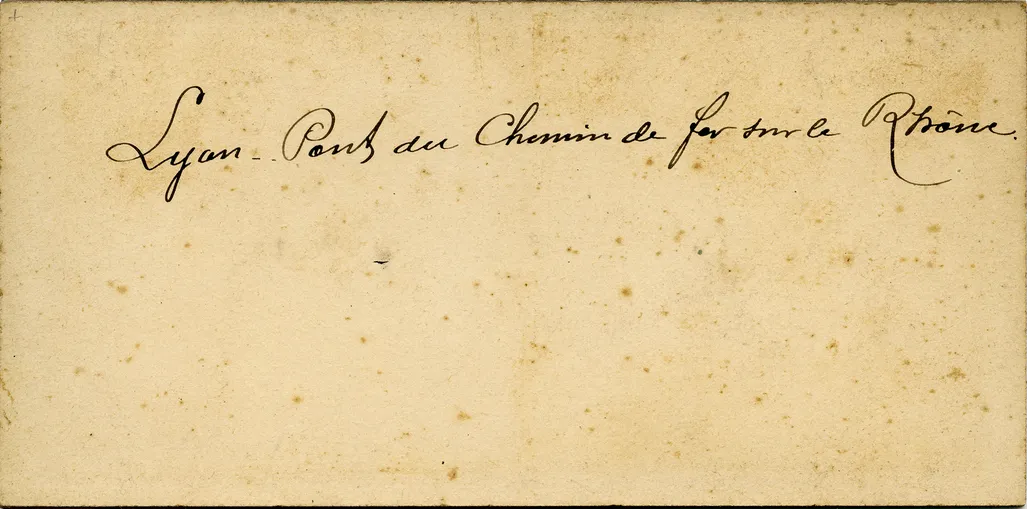 Lyon - Pont du Chemin de fer sur le Rhône.